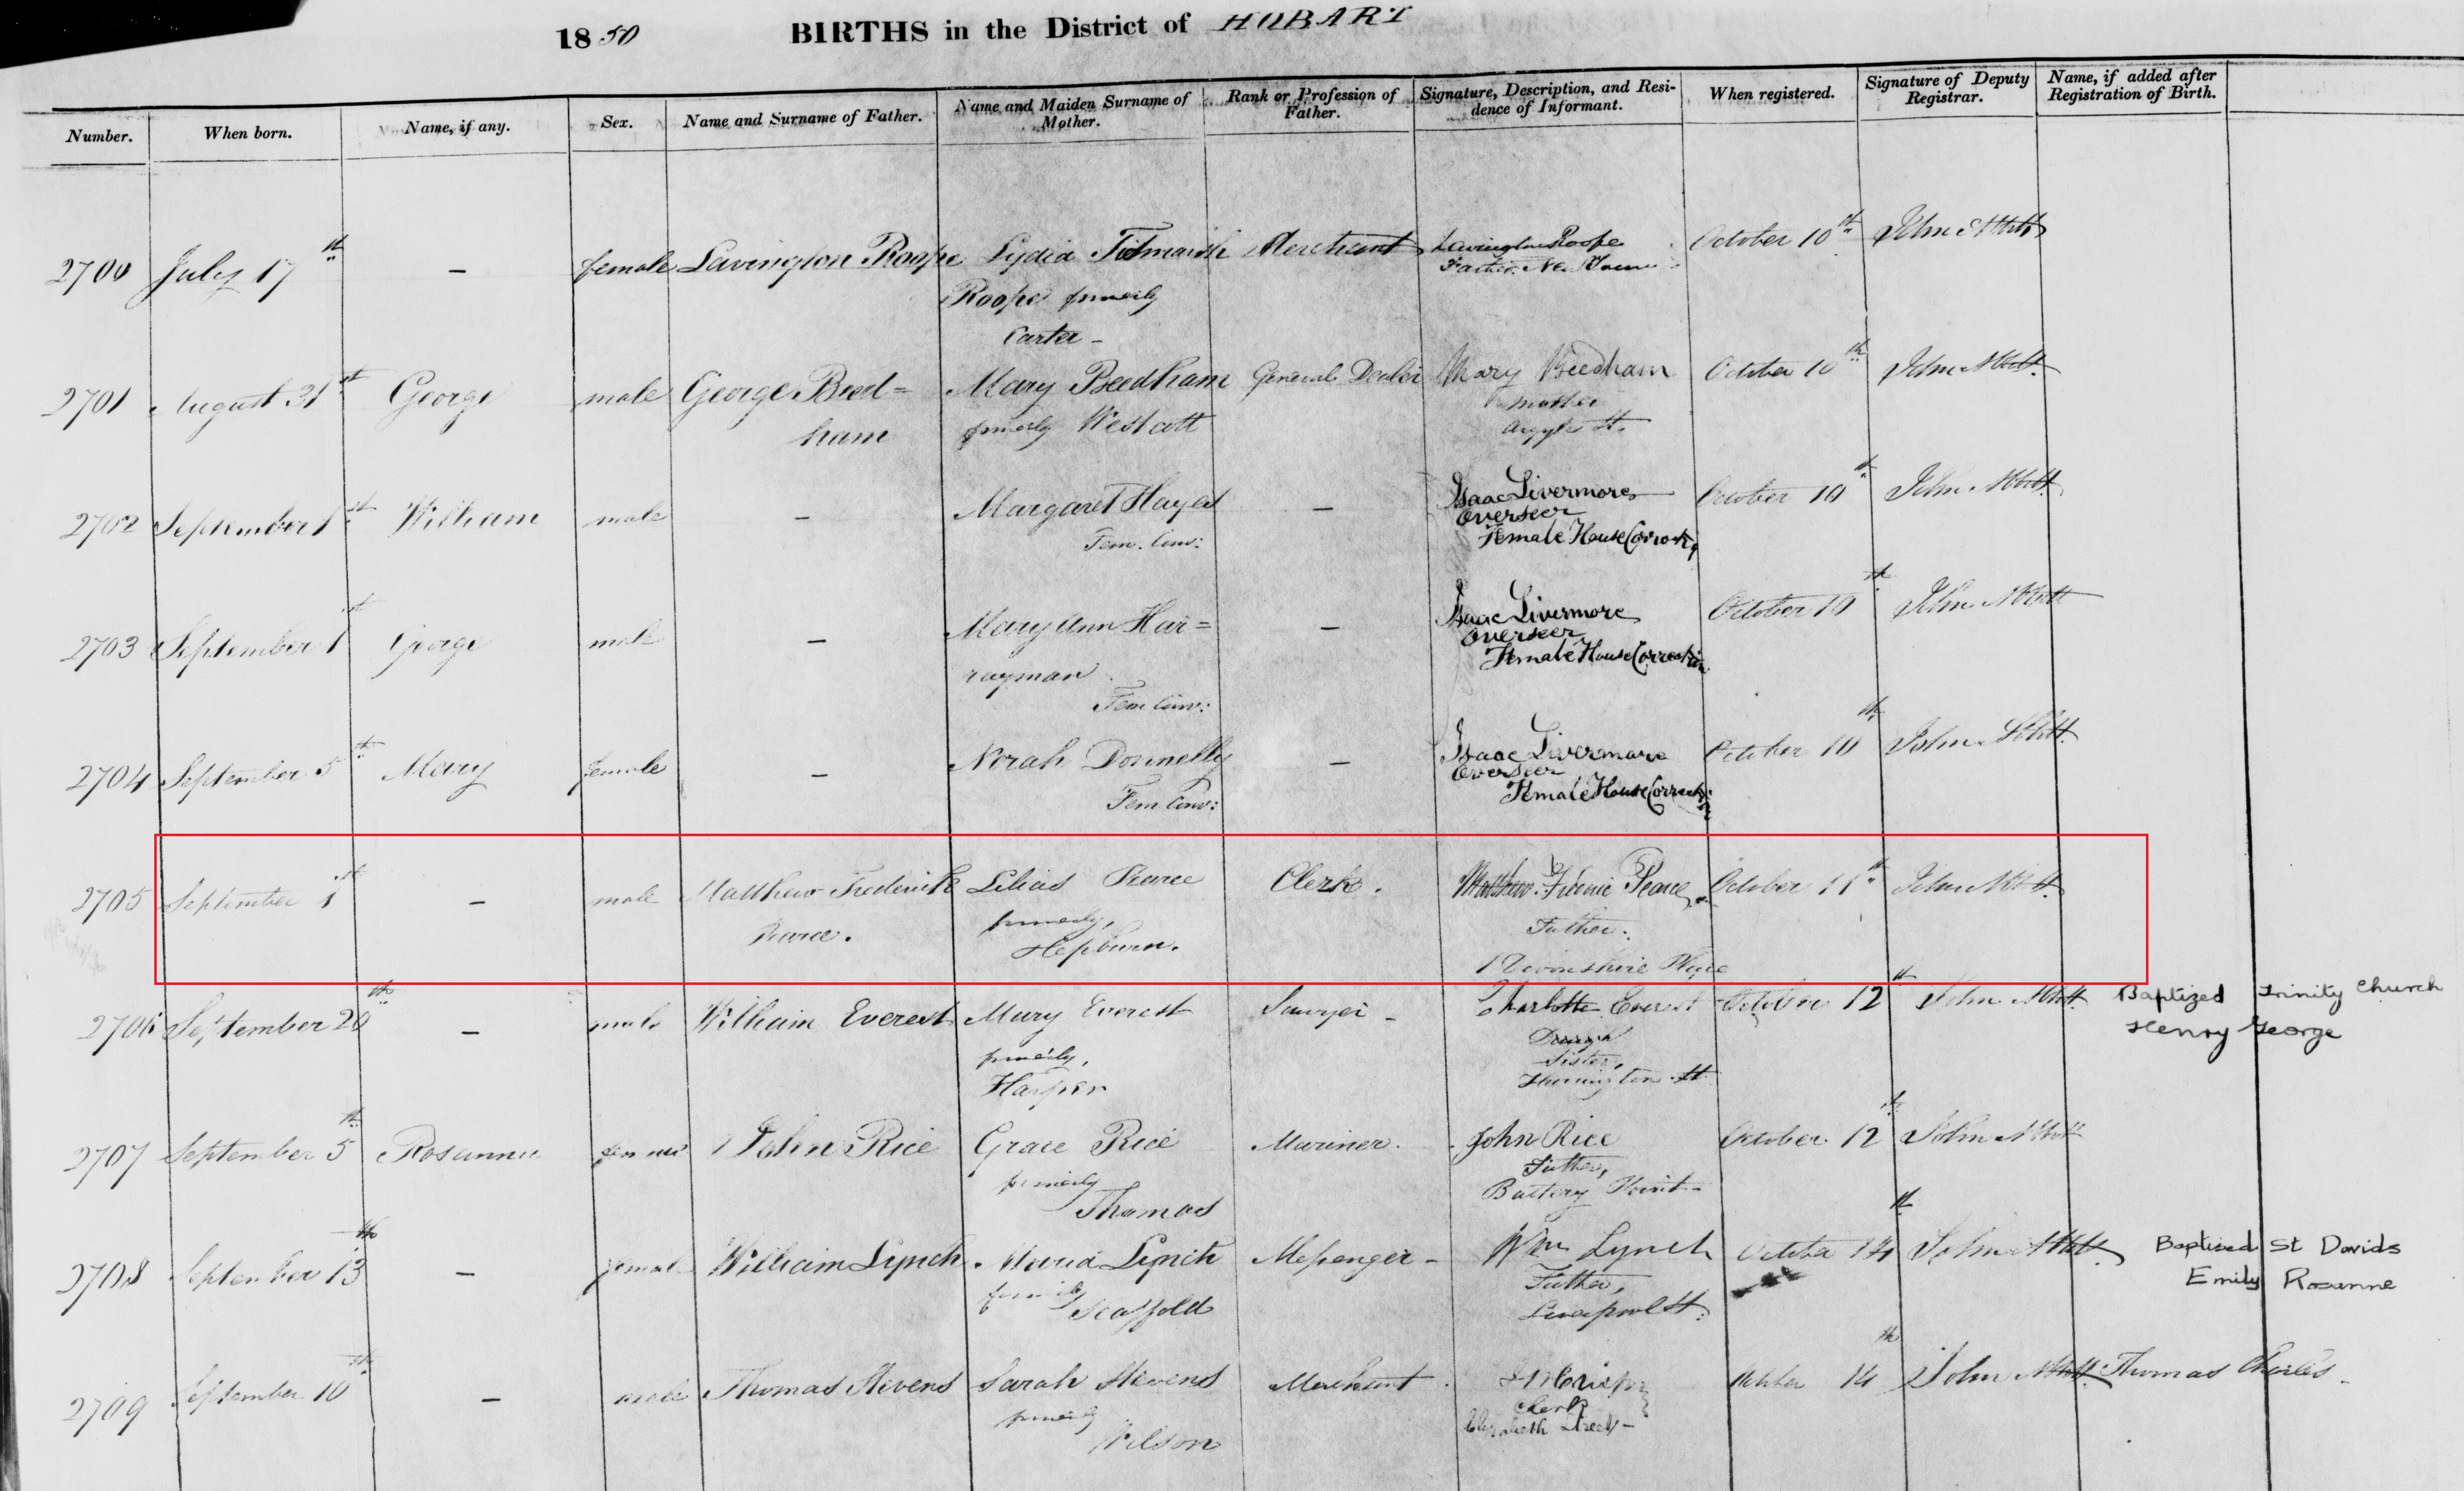 1850 BIRTHS in the District of HOBART
Number. When born. Name, if any. Sex. Name and Surname of Father. Name and Maiden Surname of Mother. Rank or Profession of Father. Signature, Description, and Residence of Informant. When registered. Signature of Deputy Registrar. Name, if added after Registration of Birth.
2700 July 17th — female Lavington Roope Lydia Titmarsh Merchant Lavington Roope October 10th John Abbott
Roope formerly Father New Town
Carter –
2701 August 31st George male George Beed= Mary Beedham General Dealer Mary Beedham October 10th John Abbott
ham formerly Westcott mother
Argyle St.
2702 September 1st William male — Margaret Hayes — Isaac Livermore October 10th John Abbott
Fem. Conv: Overseer
Female House Correction
2703 September 1st George male — Mary Ann Har= — Isaac Livermore October 10th John Abbott
rayman Overseer
Fem Conv: Female House Correction
2704 September 5th Mary female — Norah Donnelly — Isaac Livermore October 10th John Abbott
Fem Conv: Overseer
Female House Correction
2705 September 1st — male Matthew Frederick Lilias Pearce Clerk. Matthew Pearce October 11th John Abbott
Pearce. formerly, Father.
Hepburn. 1 Devonshire Place
2706 September 20th — male William Everest Mary Everest Sawyer – Charlotte Everest October 12th John Abbott Baptized Trinity Church
formerly, Henry George
Harper Sister,
2707 September 5th Rosanna female John Rice Grace Rice Mariner. John Rice October 12th John Abbott
formerly Father,
Thomas Battery Point –
2708 September 13th — female William Lynch Maria Lynch Messenger – Wm Lynch October 14th John Abbott Baptised St Davids
formerly Father, Emily Rosanne
Scaffold Liverpool St.
2709 September 10th — male Thomas Stevens Sarah Stevens Merchant October 14th John Abbott Thomas Charles
formerly Clerk
Wilson Elizabeth Street –